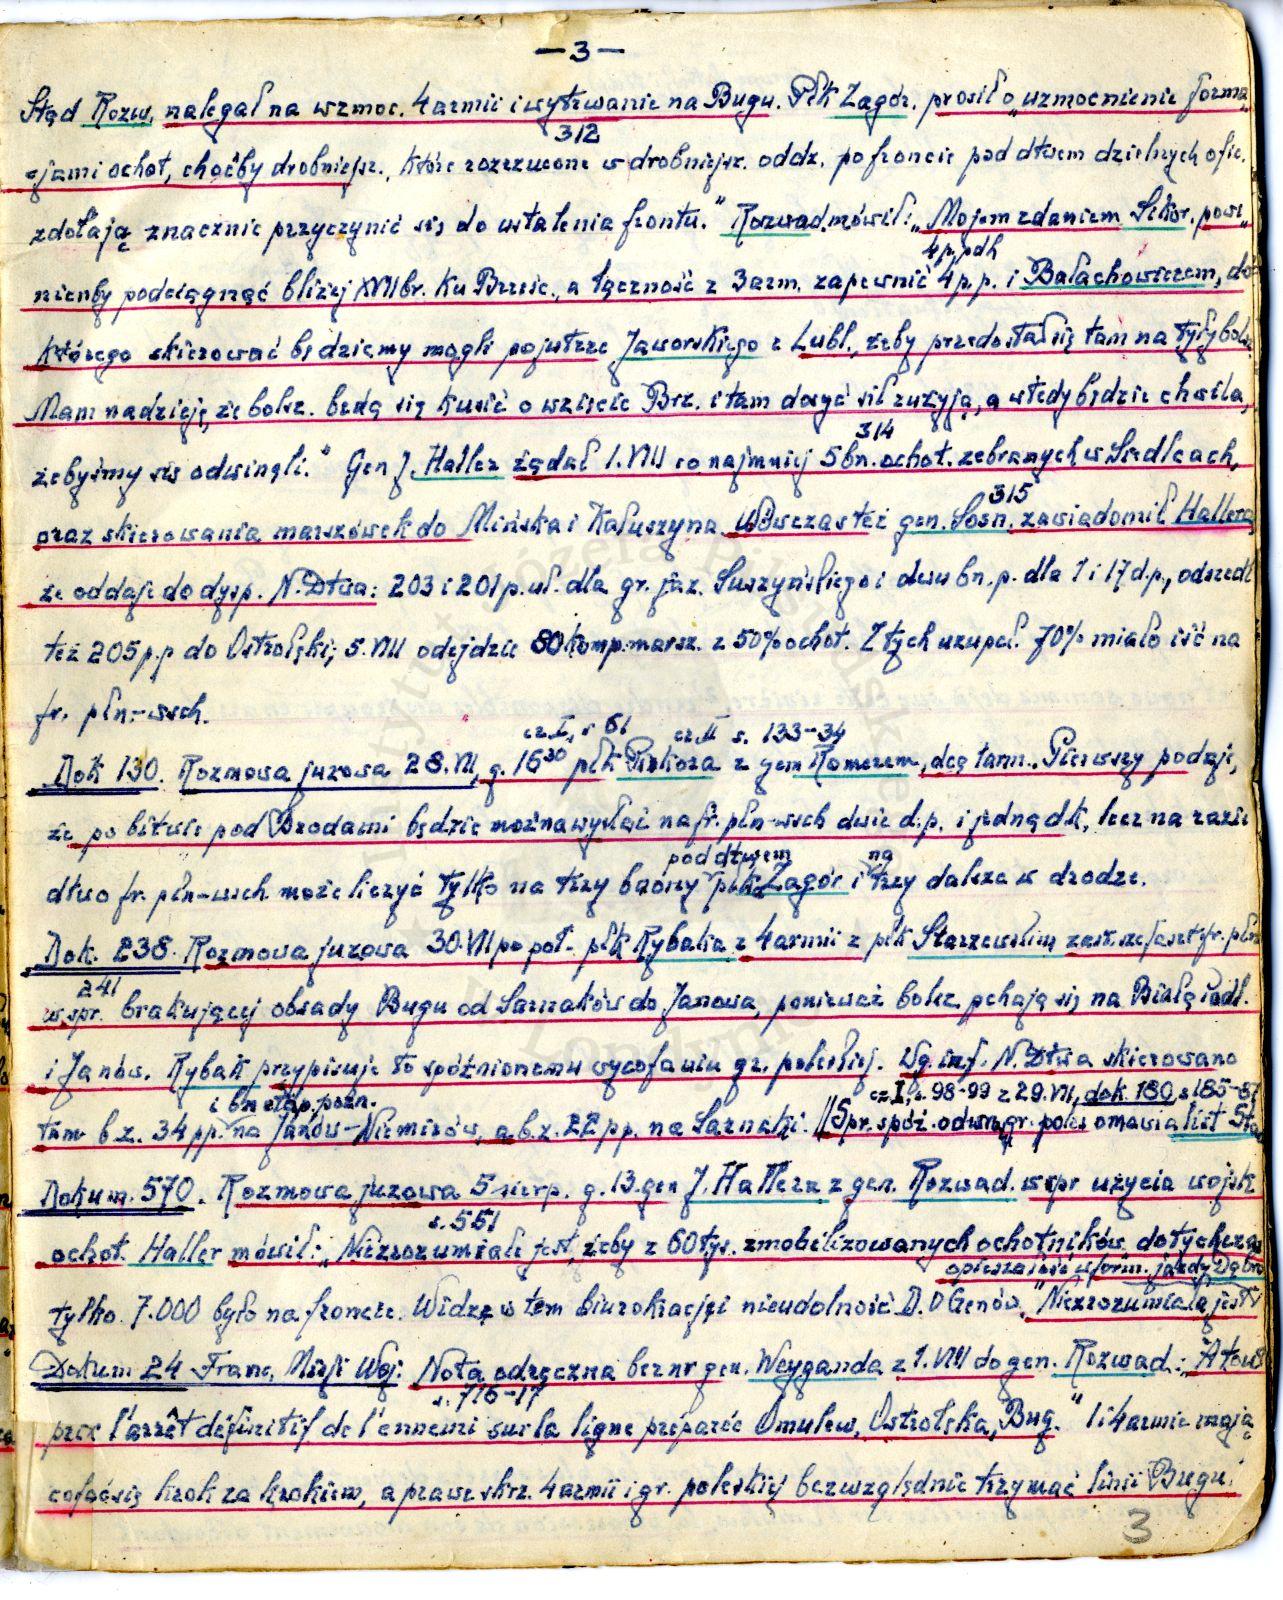 — 3 —
Stąd Rozw. nalegał na wzmoc. 4 armii i wytrwanie na Bugu. Płk Zagór. prosił o „wzmocnienie forma„
312
cjami ochot, choćby drobniejsz., które rozrzucone w drobniejsz. oddz. po froncie pod dtwem dzielnych ofic.
zdołają znacznie przyczynić się do ustalenia frontu." Rozwad. mówił: „Mojem zdaniem Sikor. powi„
4 p. pdh
nienby podciągnąć bliżej XVII br. ku Brześc., a łączność z 3 arm. zapewnić 4 p. p. i Bałachowiczem, do
którego skierować będziemy mogli pojutrze Jaworskiego z Lubl., żeby przedostał się tam na tyły bolsz.
Mam nadzieję, że bolsz. będą się kusić o wzięcie Brz. i tam dosyć sił zużyją, a wtedy będzie chwila,
314
żebyśmy się odwinęli." Gen J. Haller żądał 1.VIII co najmniej 5 bn. ochot. zebranych w Siedlcach,
315
oraz skierowania marszówek do Mińska i Kałuszyna. Wówczas też gen. Sosn. zawiadomił Hallera,
że oddaje do dysp. N. Dtwa: 203 i 201 p. uł. dla gr. jaz. Suszyńskiego i dwu bn. p. dla 1 i 17 d.p., odszedł
też 205 p.p do Ostrołęki; 5.VIII odejdzie 80 komp. marsz. z 50% ochot. Z tych uzupeł. 70% miało iść na
fr. płn.-wsch.
cz. I, s 61 cz. II s. 133-34
Dok 130. Rozmowa juzowa 28.VII, g. 16³⁰ płk Piskora z gen Romerem, dcą tamt. Pierwszy podaje,
że po bitwie pod Brodami będzie można wysłać na fr. płn-wsch dwie d.p. i jedną d k, lecz na razie
pod dtwem na
dtwo fr. płn-wsch może liczyć tylko na trzy baony płk Zagór i trzy dalsze w drodze.
Dok. 238. Rozmowa juzowa 30.VII po poł. płk Rybaka z 4 armii z płk Starzewskim, zast. szefa szt. fr. płn
241
w spr. brakującej obsady Bugu od Sarnaków do Janowa, ponieważ bolsz. pchają się na Białą Podl.
i Janów. Rybak przypisuje to spóźnionemu wycofaniu gr. poleskiej. Wg. inf. N. Dtwa skierowano
i bn etap. pozn. cz. I, s. 98-99 z 29.VII, dok. 180, s 185-87
tam b.z. 34 pp. na Janów-Niemirów, a b.z. 22 pp. na Sarnaki. // Spr. spóź. odwr. gr. poles omawia list Sta
Dokum. 570. Rozmowa juzowa 5 sierp. g. 13. gen J. Hallera z gen. Rozwad. w spr użycia wojsk
s. 551
ochot. Haller mówił: „Niezrozumiałe jest, żeby z 60 tys. zmobilizowanych ochotników, dotychczas
opieszałość w form. jazdy Dąbro
tylko 7.000 było na froncie. Widzę w tem biurokrację i nieudolność D.O Genów. "Niezrozumiałą jest
Dokum 24 Franc. Misji Woj: Nota odręczna bez nr gen. Weyganda z 1.VIII do gen. Rozwad.:
s. 716-17
prix l'arrêt définitif de l'ennemi sur la ligne préparée Omulew, Ostrołęka, Bug." 1 i 4 armie mają
cofać się krok za krokiem, a prawe skrz. 4 armii i gr. poleskiej bezwzględnie trzymać linii Bugu.
3